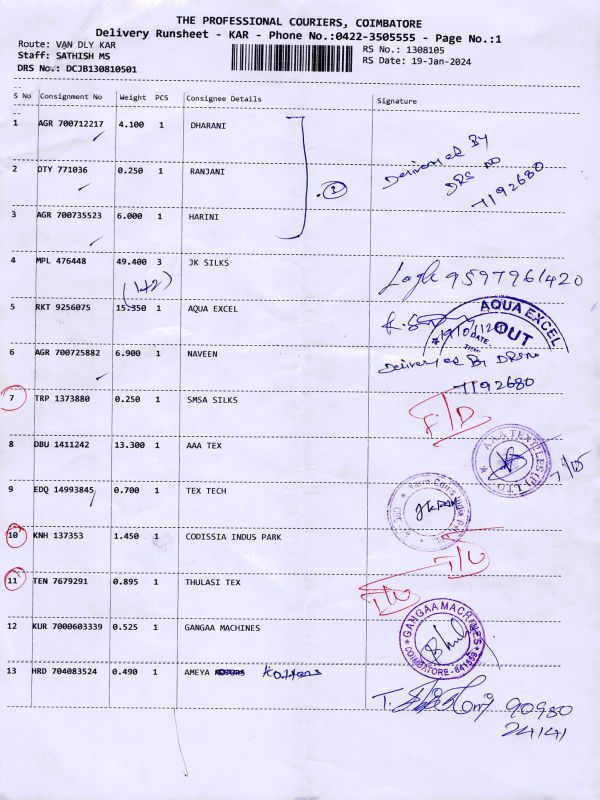 THE PROFESSIONAL COURIERS, COIMBATORE
Delivery Runsheet - KAR - Phone No.:0422-3505555 - Page No.:1
Route: VAN DLY KAR RS No.: 1308105
Staff: SATHISH MS RS Date: 19-Jan-2024
DRS No.: DCJB130810501
S No Consignment No Weight PCS Consignee Details Signature
1 AGR 700712217 4.100 1 DHARANI
Delivered By
2 DTY 771036 0.250 1 RANJANI
DRS NO
7192680
3 AGR 700735523 6.000 1 HARINI
4 MPL 476448 49.400 3 JK SILKS
9597961420
(1+2)
5 RKT 9256075 15.350 1 AQUA EXCEL
AQUA EXCEL
OUT
DATE
6 AGR 700725882 6.900 1 NAVEEN
Delivered By DRS No
7192680
7 TRP 1373880 0.250 1 SMSA SILKS
F/D
8 DBU 1411242 13.300 1 AAA TEX
AAA TEXTILES (P) LTD
9 EDQ 14993845 0.700 1 TEX TECH
10 KNH 137353 1.450 1 CODISSIA INDUS PARK
11 TEN 7679291 0.895 1 THULASI TEX
12 KUR 7000603339 0.525 1 GANGAA MACHINES
GANGAA MACHINES
COIMBATORE
13 HRD 704083524 0.490 1 AMEYA
90980
24141